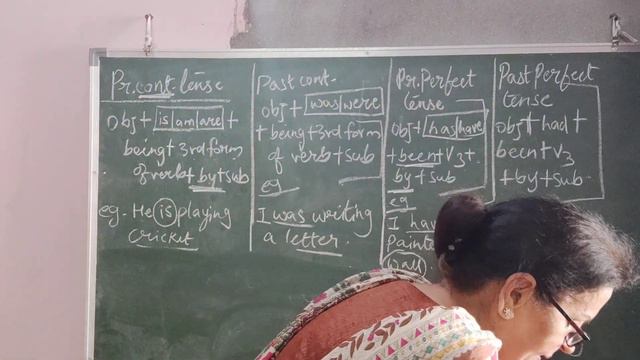 Pr. cont. Tense
Obj + is|am|are +
being + 3rd form
of verb + by + sub
eg. He is playing
cricket
Past cont.
obj + was|were
+ being + 3rd form
of verb + sub
eg
I was writing
a letter.
Pr. Perfect
tense
obj + has|have
+ been + V3 +
by + sub
eg
I
wall
Past Perfect
tense
obj + had +
been + V3
+ by + sub